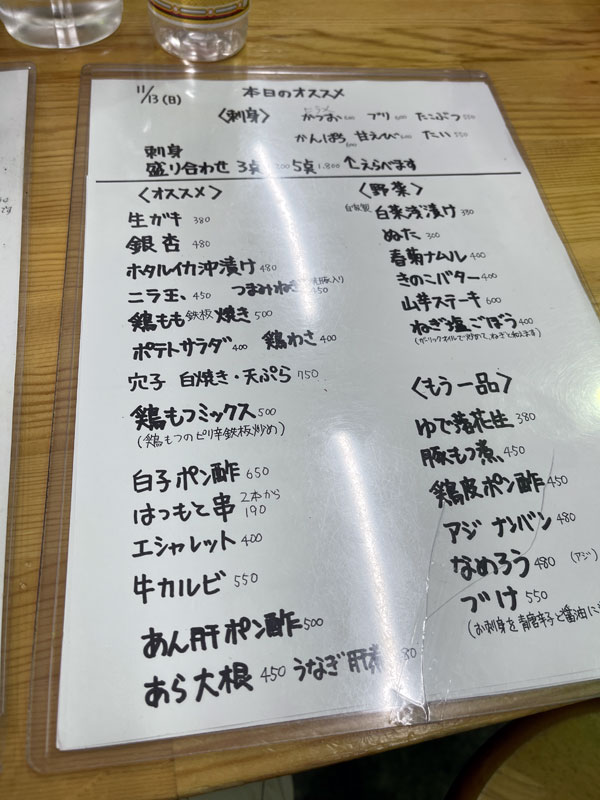 11/13(日) 本日のオススメ
〈刺身〉 かつお 600 ブリ 600 たこぶつ 550
かんぱち 甘えび 600 たい 550
刺身
盛り合わせ 3点 5点 1.800 ↑えらべます
〈オススメ〉
生ガキ 380
銀杏 480
ホタルイカ沖漬け 480
ニラ玉、450 つまみねぎ 450
鶏もも鉄板焼き 500
ポテトサラダ 400 鶏わさ 400
穴子 白焼き・天ぷら 750
鶏もつミックス 500
(鶏もつのピリ辛鉄板炒め)
白子ポン酢 650
はつもと串 2本から 190
エシャレット 400
牛カルビ 550
あん肝ポン酢 500
あら大根 450 うなぎ肝煮
〈野菜〉
自家製 白菜浅漬け 380
ぬた 300
春菊ナムル 400
きのこバター 400
山芋ステーキ 600
ねぎ塩ごぼう 400
(ガーリックオイルで炒めて、ねぎと和えます)
〈もう一品〉
ゆで落花生 380
豚もつ煮、450
鶏皮ポン酢 450
アジ ナンバン 480
なめろう 480 (アジ)
づけ 550
(お刺身を青唐辛子と醤油に